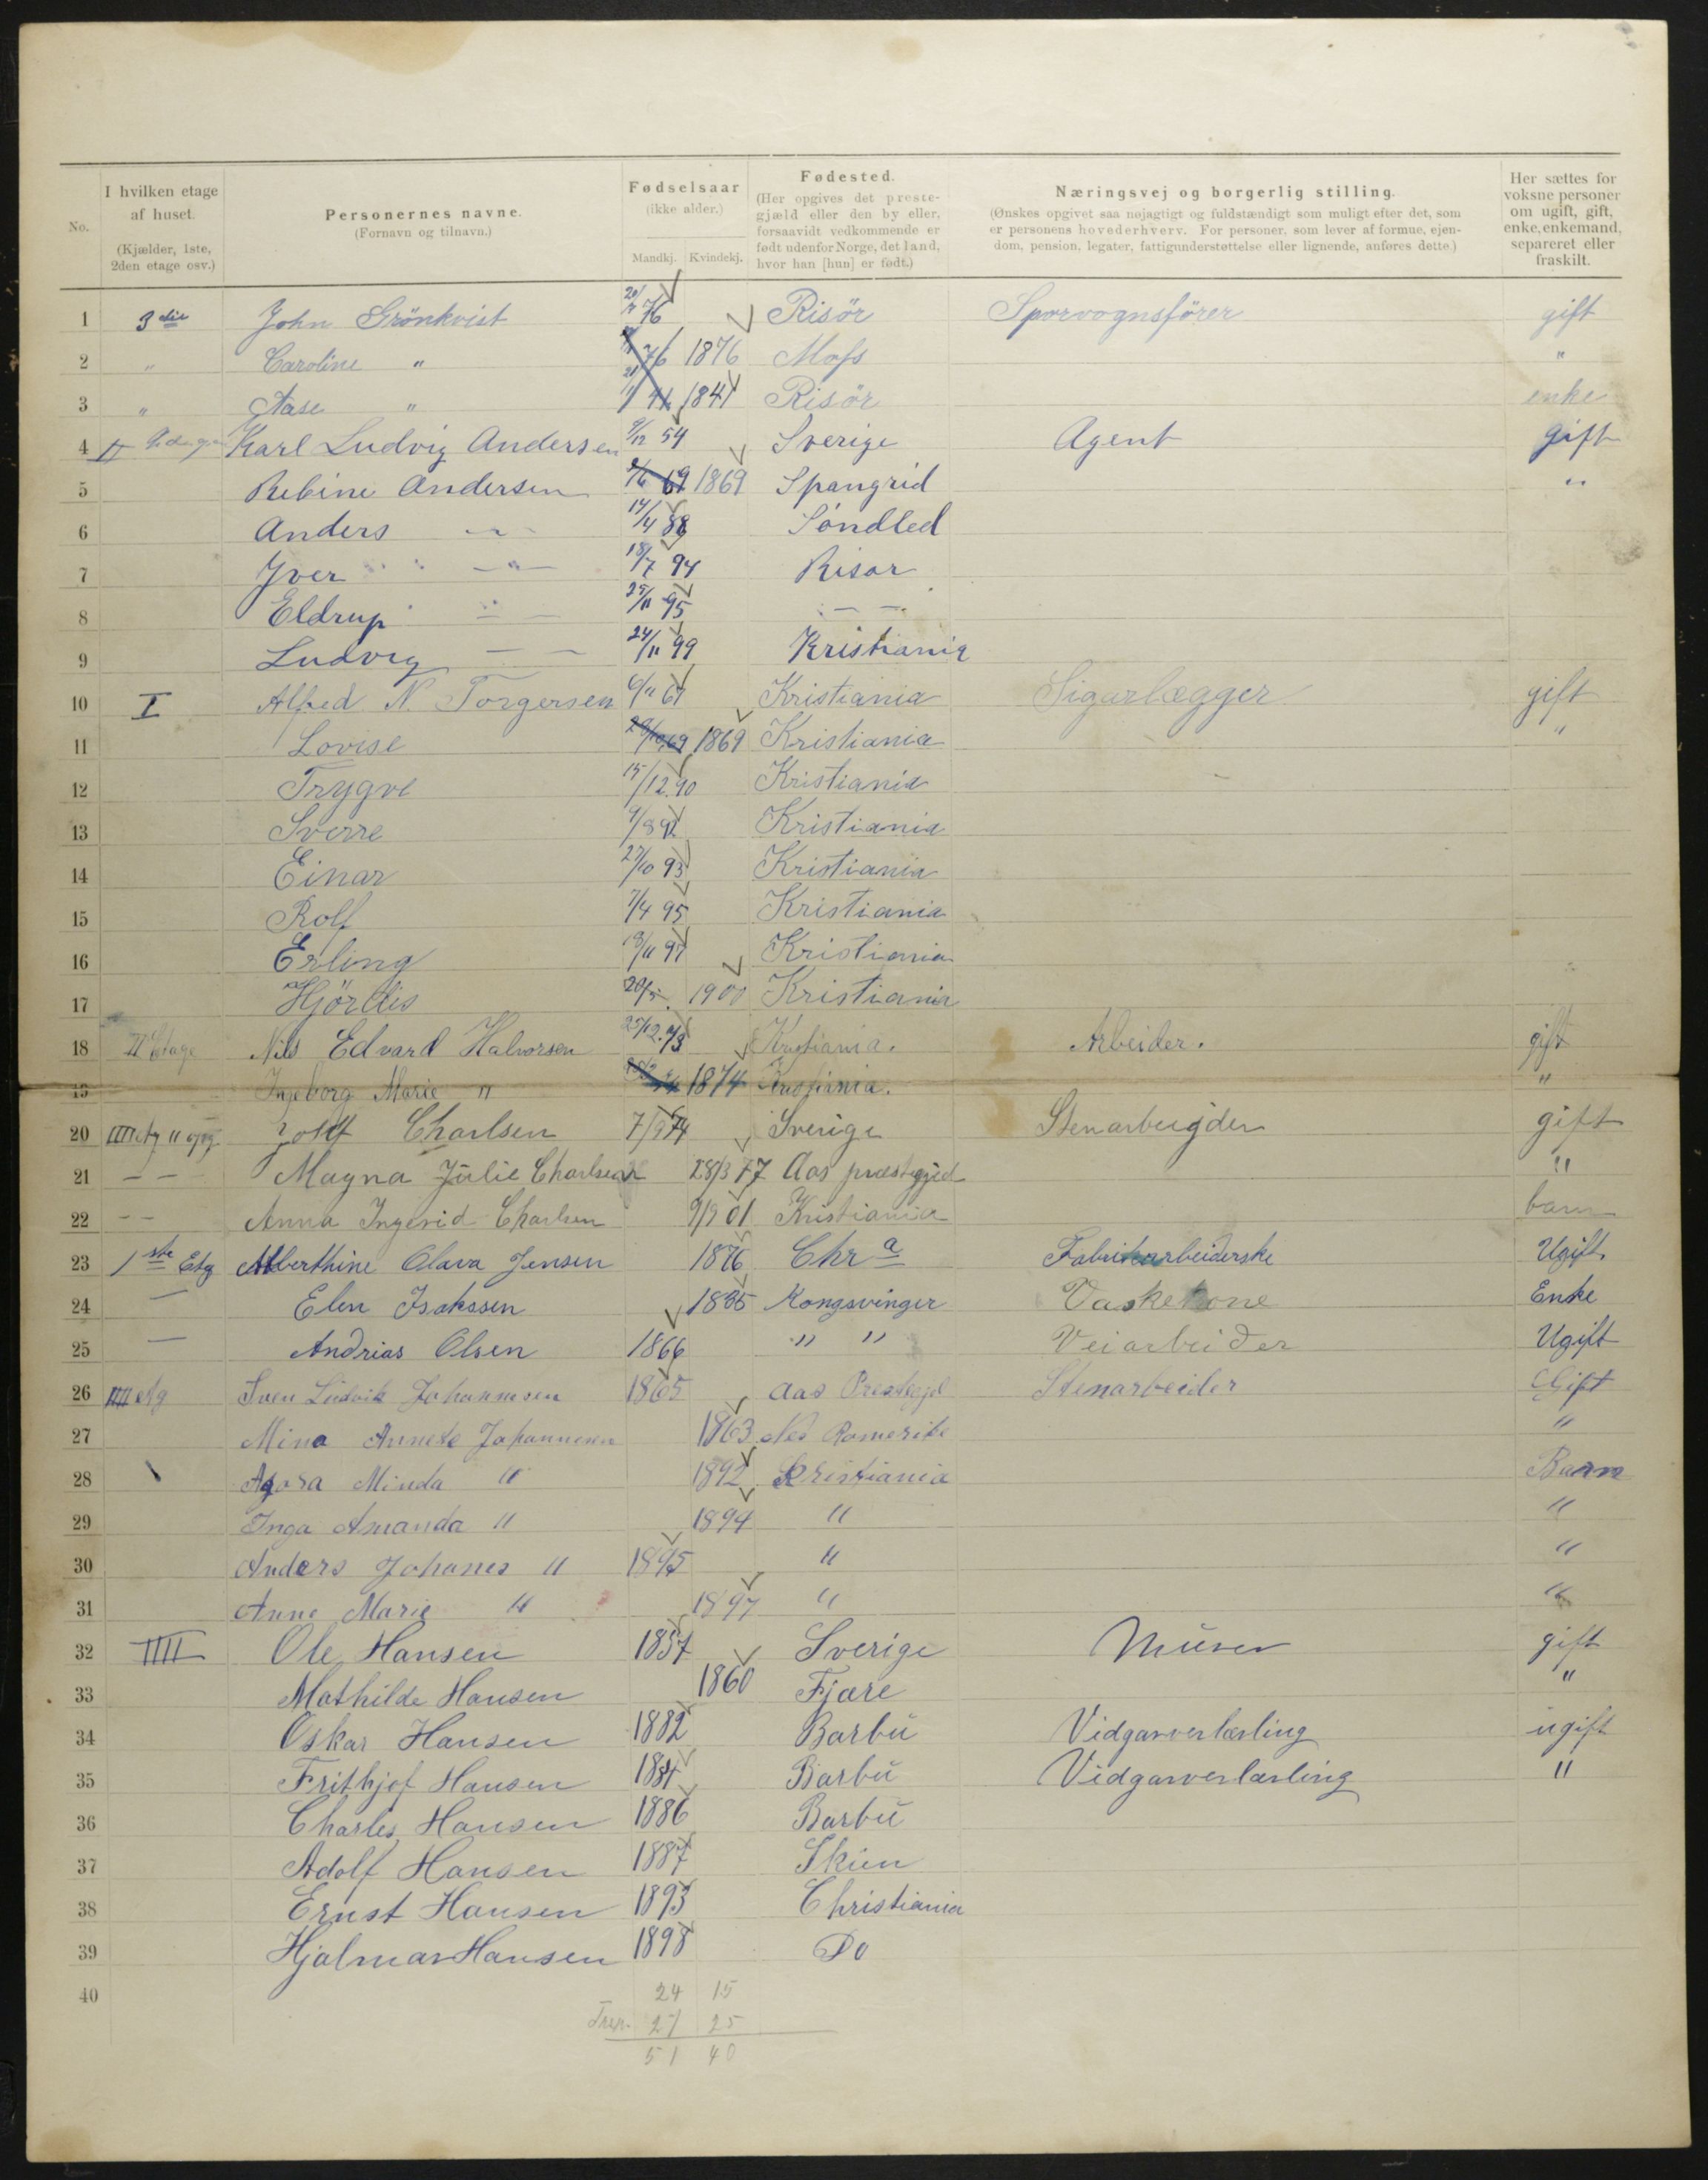 No.
I hvilken etage af huset. (Kjælder, 1ste, 2den etage osv.)
Personernes navne. (Fornavn og tilnavn.)
Fødselsaar (ikke alder.) Mandkj. Kvindekj.
Fødested. (Her opgives det prestegjæld eller den by eller, forsaavidt vedkommende er født udenfor Norge, det land, hvor han [hun] er født.)
Næringsvej og borgerlig stilling. (Ønskes opgivet saa nøjagtigt og fuldstændigt som muligt efter det, som er personens hovederhverv. For personer, som lever af formue, ejendom, pension, legater, fattigunderstøttelse eller lignende, anføres dette.)
Her sættes for voksne personer om ugift, gift, enke, enkemand, separeret eller fraskilt.
1 3die John Grönkvist 76 Risör Sporvognsförer gift
2 " Caroline " 76 1876 Moss "
3 " Aase " 41 1841 Risör enke
4 II Karl Ludvig Andersen 9/12 54 Sverige Agent gift
5 Rebine Andersen 69 1869 Spangrid "
6 Anders — 14/4 88 Söndled
7 Iver — " — 18/7 94 Risor
8 Eldrup — — 25/11 95 — —
9 Ludvig — — 24/11 99 Kristiania
10 I Alfred N. Torgersen 6/11 67 Kristiania Sigarlægger gift
11 Lovise 29/10 69 1869 Kristiania "
12 Trygve 15/12 90 Kristiania
13 Sverre 9/8 92 Kristiania
14 Einar 27/10 93 Kristiania
15 Rolf 7/4 95 Kristiania
16 Erling 18/11 97 Kristiania
17 Hjördis 20/5 1900 Kristiania
18 II Etage Nils Edvard Halvorsen 25/12.73 Kristiania. Arbeider. gift
19 Ingeborg Marie " 1874 Kristiania. "
20 IIII Etg Charlsen 7/9 74 Sverige Stenarbeigder gift
21 — — Magna Julie Charlsen 28/3 77 Aas præstegjed "
22 — — Anna Ingerid Charlsen 9/9 01 Kristiania barn
23 1ste Etg Alberthine Olava Jensen 1876 Chra Fabrikarbeiderske Ugift
24 — Elen Isakssen 1835 Kongsvinger Vaskekone Enke
25 — Andrias Olsen 1866 " " Veiarbeider Ugift
26 IIII etg Sven Ludvik Johannesen 1865 Aas Prestegjl Stenarbeider Gift
27 Mina Annete Johannesen 1863 Nes Romerike "
28 Agora Minda " 1892 Kristiania Barn
29 Inga Amanda " 1894 " "
30 Anders Johanes " 1895 " "
31 Anne Marie " 1897 " "
32 IIII Ole Hansen 1857 Sverige Murer gift
33 Mathilde Hansen 1860 Fjære "
34 Oskar Hansen 1882 Barbu Vidgarverlærling ugift
35 Frithjof Hansen 1884 Barbu Vidgarverlærling "
36 Charles Hansen 1886 Barbu
37 Adolf Hansen 1887 Skien
38 Ernst Hansen 1893 Christiania
39 Hjalmar Hansen 1898 Do
40
24 15
27 25
51 40